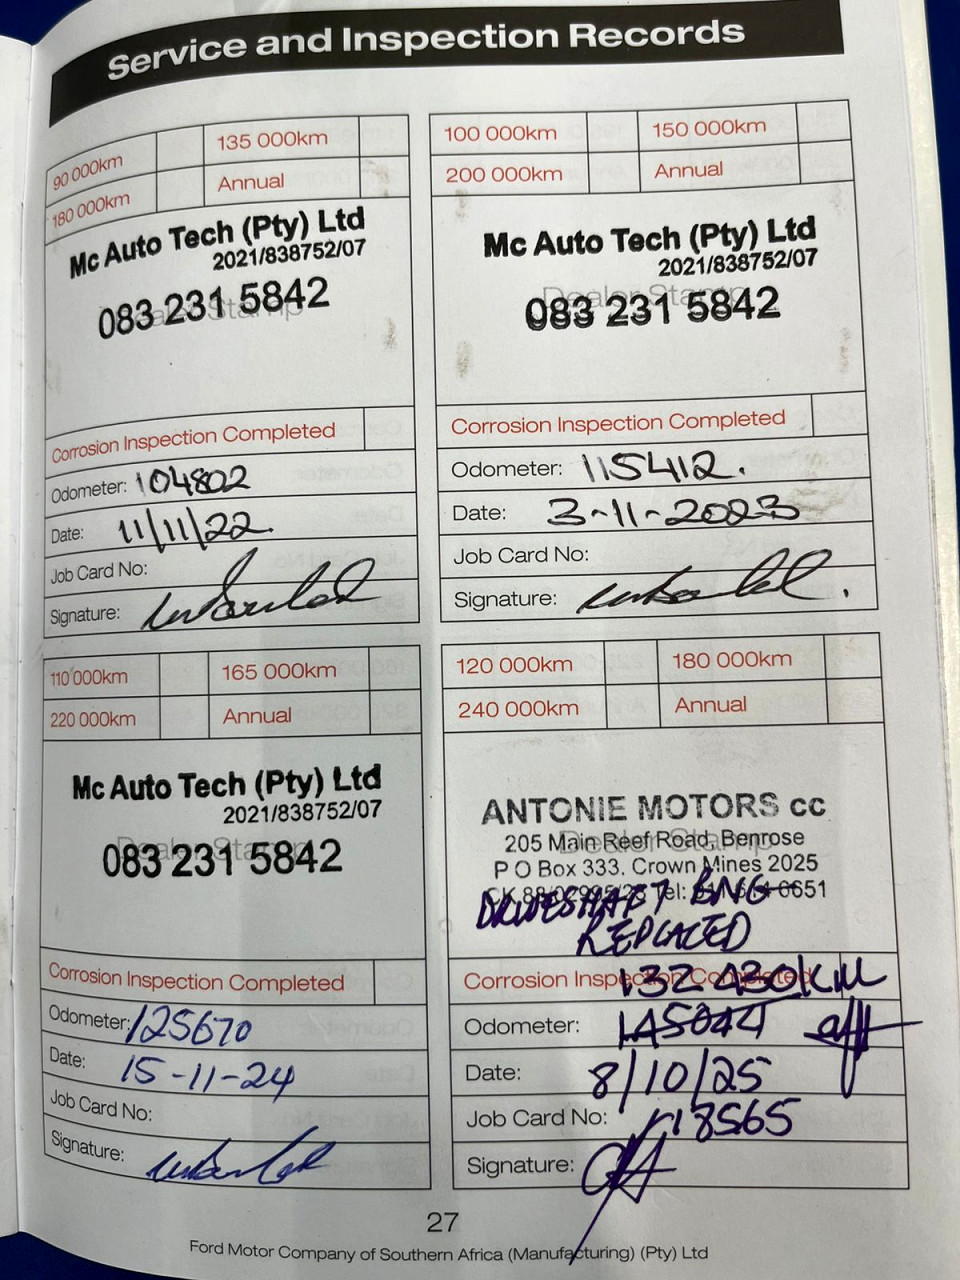 Service and Inspection Records
90 000km 135 000km
180 000km Annual
Mc Auto Tech (Pty) Ltd
2021/838752/07
Dealer Stamp
083 231 5842
Corrosion Inspection Completed
Odometer: 104802
Date: 11/11/22
Job Card No:
Signature:
100 000km 150 000km
200 000km Annual
Mc Auto Tech (Pty) Ltd
2021/838752/07
Dealer Stamp
083 231 5842
Corrosion Inspection Completed
Odometer: 115412.
Date: 3-11-2023
Job Card No:
Signature:
110 000km 165 000km
220 000km Annual
Mc Auto Tech (Pty) Ltd
2021/838752/07
Dealer Stamp
083 231 5842
Corrosion Inspection Completed
Odometer: 125670
Date: 15-11-24
Job Card No:
Signature:
120 000km 180 000km
240 000km Annual
ANTONIE MOTORS cc
205 Main Reef Road, Benrose
Dealer Stamp
P O Box 333. Crown Mines 2025
Tel: 6651
DRIVESHAFT BNG
REPLACED
132 430KM
Corrosion Inspection Completed
Odometer:
Date: 8/10/25
Job Card No: 18565
Signature:
27
Ford Motor Company of Southern Africa (Manufacturing) (Pty) Ltd